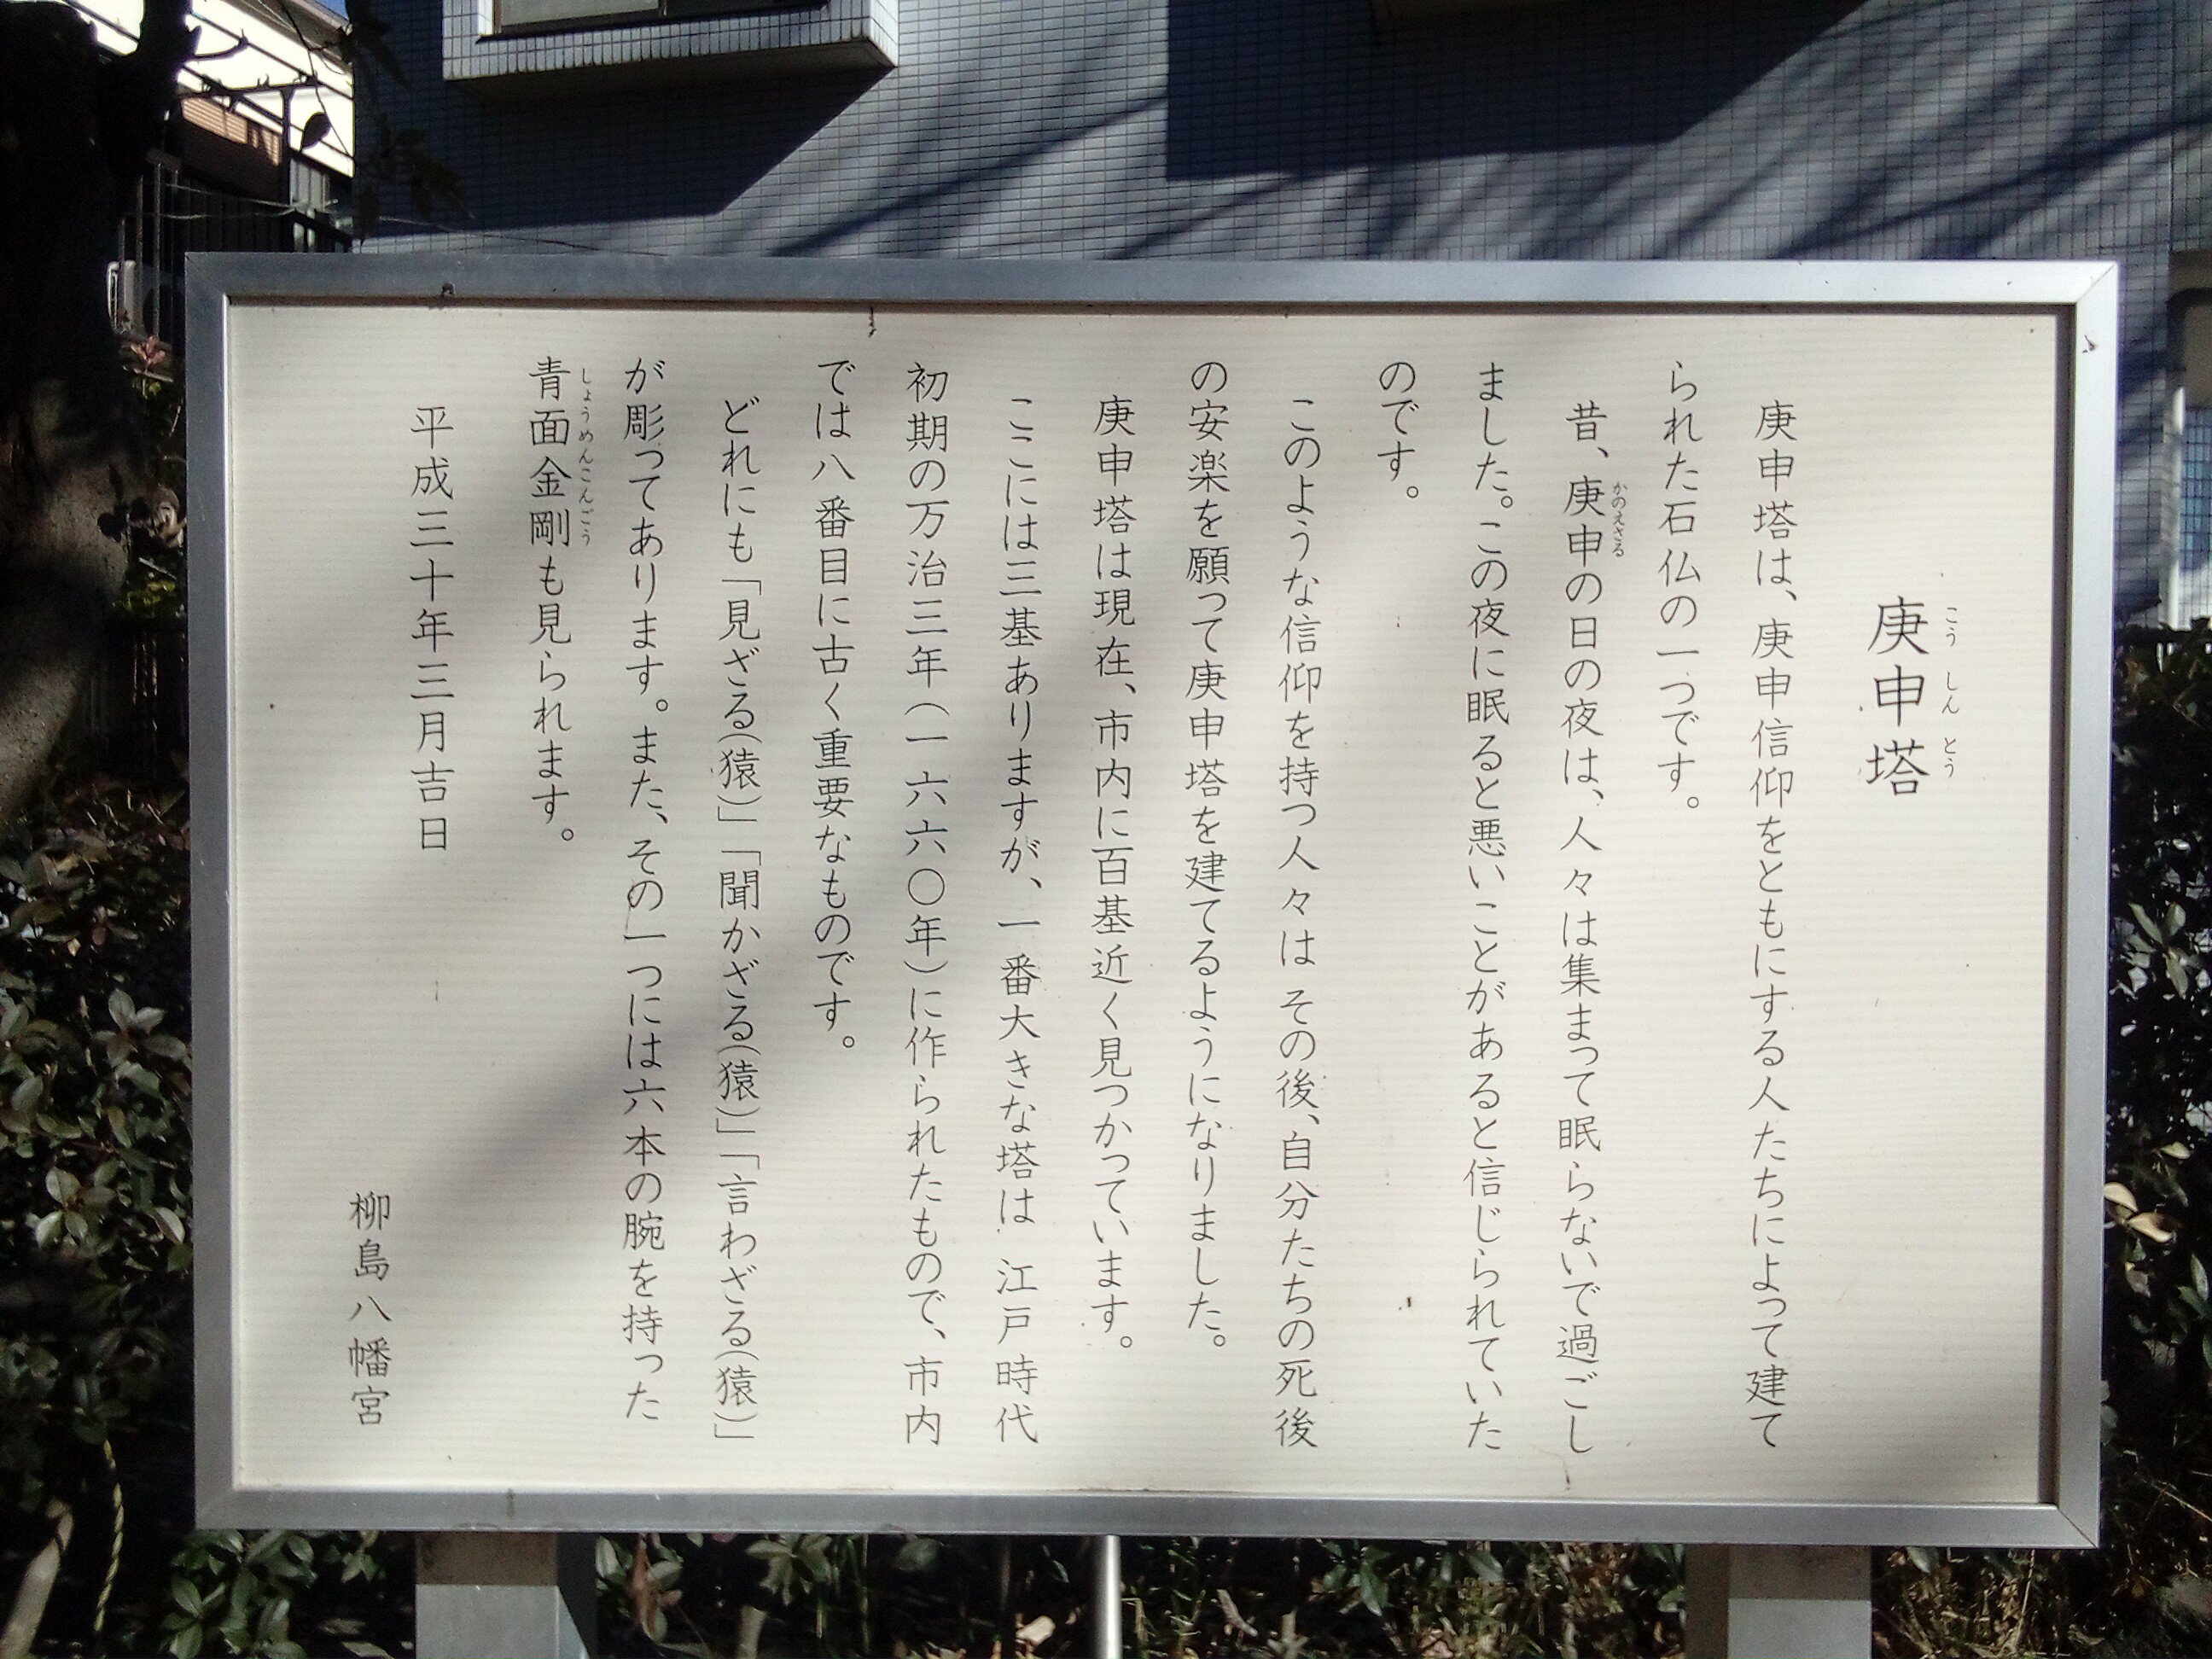 庚申塔
こうしんとう
庚申塔は、庚申信仰をともにする人たちによって建て
られた石仏の一つです。
昔、庚申の日の夜は、人々は集まって眠らないで過ごし
かのえさる
ました。この夜に眠ると悪いことがあると信じられていた
のです。
このような信仰を持つ人々は その後、自分たちの死後
の安楽を願って庚申塔を建てるようになりました。
庚申塔は現在、市内に百基近く見つかっています。
ここには三基ありますが、一番大きな塔は 江戸時代
初期の万治三年(一六六〇年)に作られたもので、市内
では八番目に古く重要なものです。
どれにも「見ざる(猿)」「聞かざる(猿)」「言わざる(猿)」
が彫ってあります。また、その一つには六本の腕を持った
青面金剛も見られます。
しょうめんこんごう
平成三十年三月吉日
柳島八幡宮